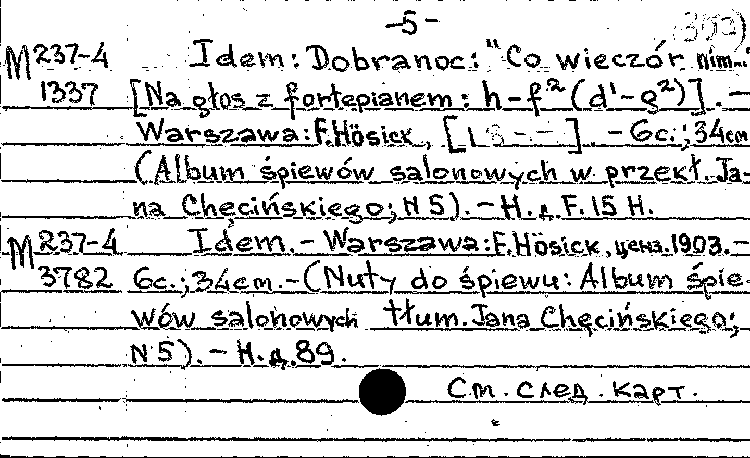 -5-
М 237-4 Idem: Dobranoc: "Co wieczór nim..."
1337 [Na głos z fortepianem: h-f² (d'-g²)]. –
Warszawa: F. Hösick, [18--]. – 6с.; 34cm
(Album śpiewów salonowych w przekł. Ja-
na Chęcińskiego; N 5). – Н. д. F. 15 H.
М 237-4 Idem. – Warszawa: F. Hösick, ценз. 1903. –
3782 6с.; 34cm. – (Nuty do śpiewu: Album śpie-
wów salonowych tłum. Jana Chęcińskiego;
N 5). – Н. д. 89.
См. след. карт.